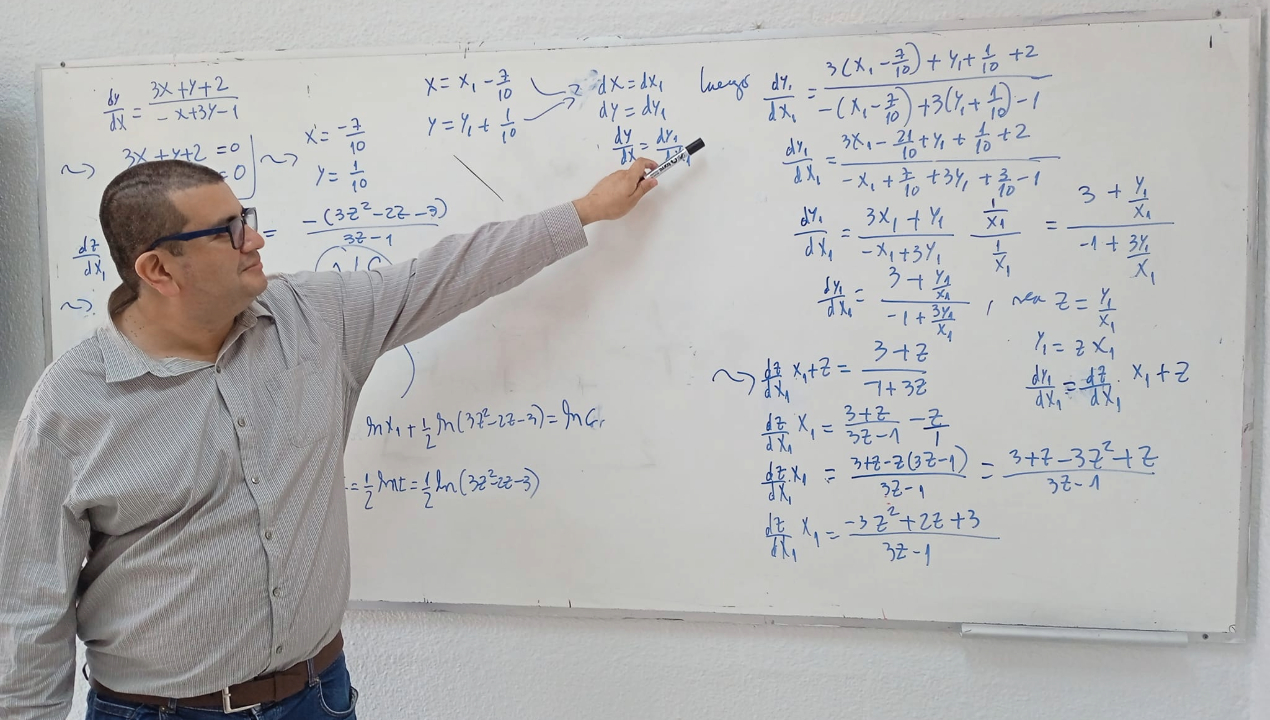 dy/dx = (3x+y+2)/(-x+3y-1)
3x+y+2 =0
=0
x = -7/10
y = 1/10
dz/dx₁
= -(3z²-2z-3)/(3z-1)
x = x₁ - 7/10
y = y₁ + 1/10
dx = dx₁
dy = dy₁
dy/dx = dy₁/dx₁
ln x₁ + 1/2 ln(3z²-2z-3) = ln C₁
= 1/2 ln t = 1/2 ln(3z²-2z-3)
luego dy₁/dx₁ = (3(x₁ - 7/10) + y₁ + 1/10 + 2)/(-(x₁ - 7/10) + 3(y₁ + 1/10) - 1)
dy₁/dx₁ = (3x₁ - 21/10 + y₁ + 1/10 + 2)/(-x₁ + 7/10 + 3y₁ + 3/10 - 1)
dy₁/dx₁ = (3x₁ + y₁)/(-x₁ + 3y₁) (1/x₁)/(1/x₁) = (3 + y₁/x₁)/(-1 + 3y₁/x₁)
dy₁/dx₁ = (3 + y₁/x₁)/(-1 + 3y₁/x₁) , sea z = y₁/x₁
y₁ = z x₁
dy₁/dx₁ = dz/dx₁ · x₁ + z
dz/dx₁ x₁ + z = (3+z)/(-1+3z)
dz/dx₁ x₁ = (3+z)/(3z-1) - z/1
dz/dx₁ x₁ = (3+z-z(3z-1))/(3z-1) = (3+z-3z²+z)/(3z-1)
dz/dx₁ x₁ = (-3z²+2z+3)/(3z-1)